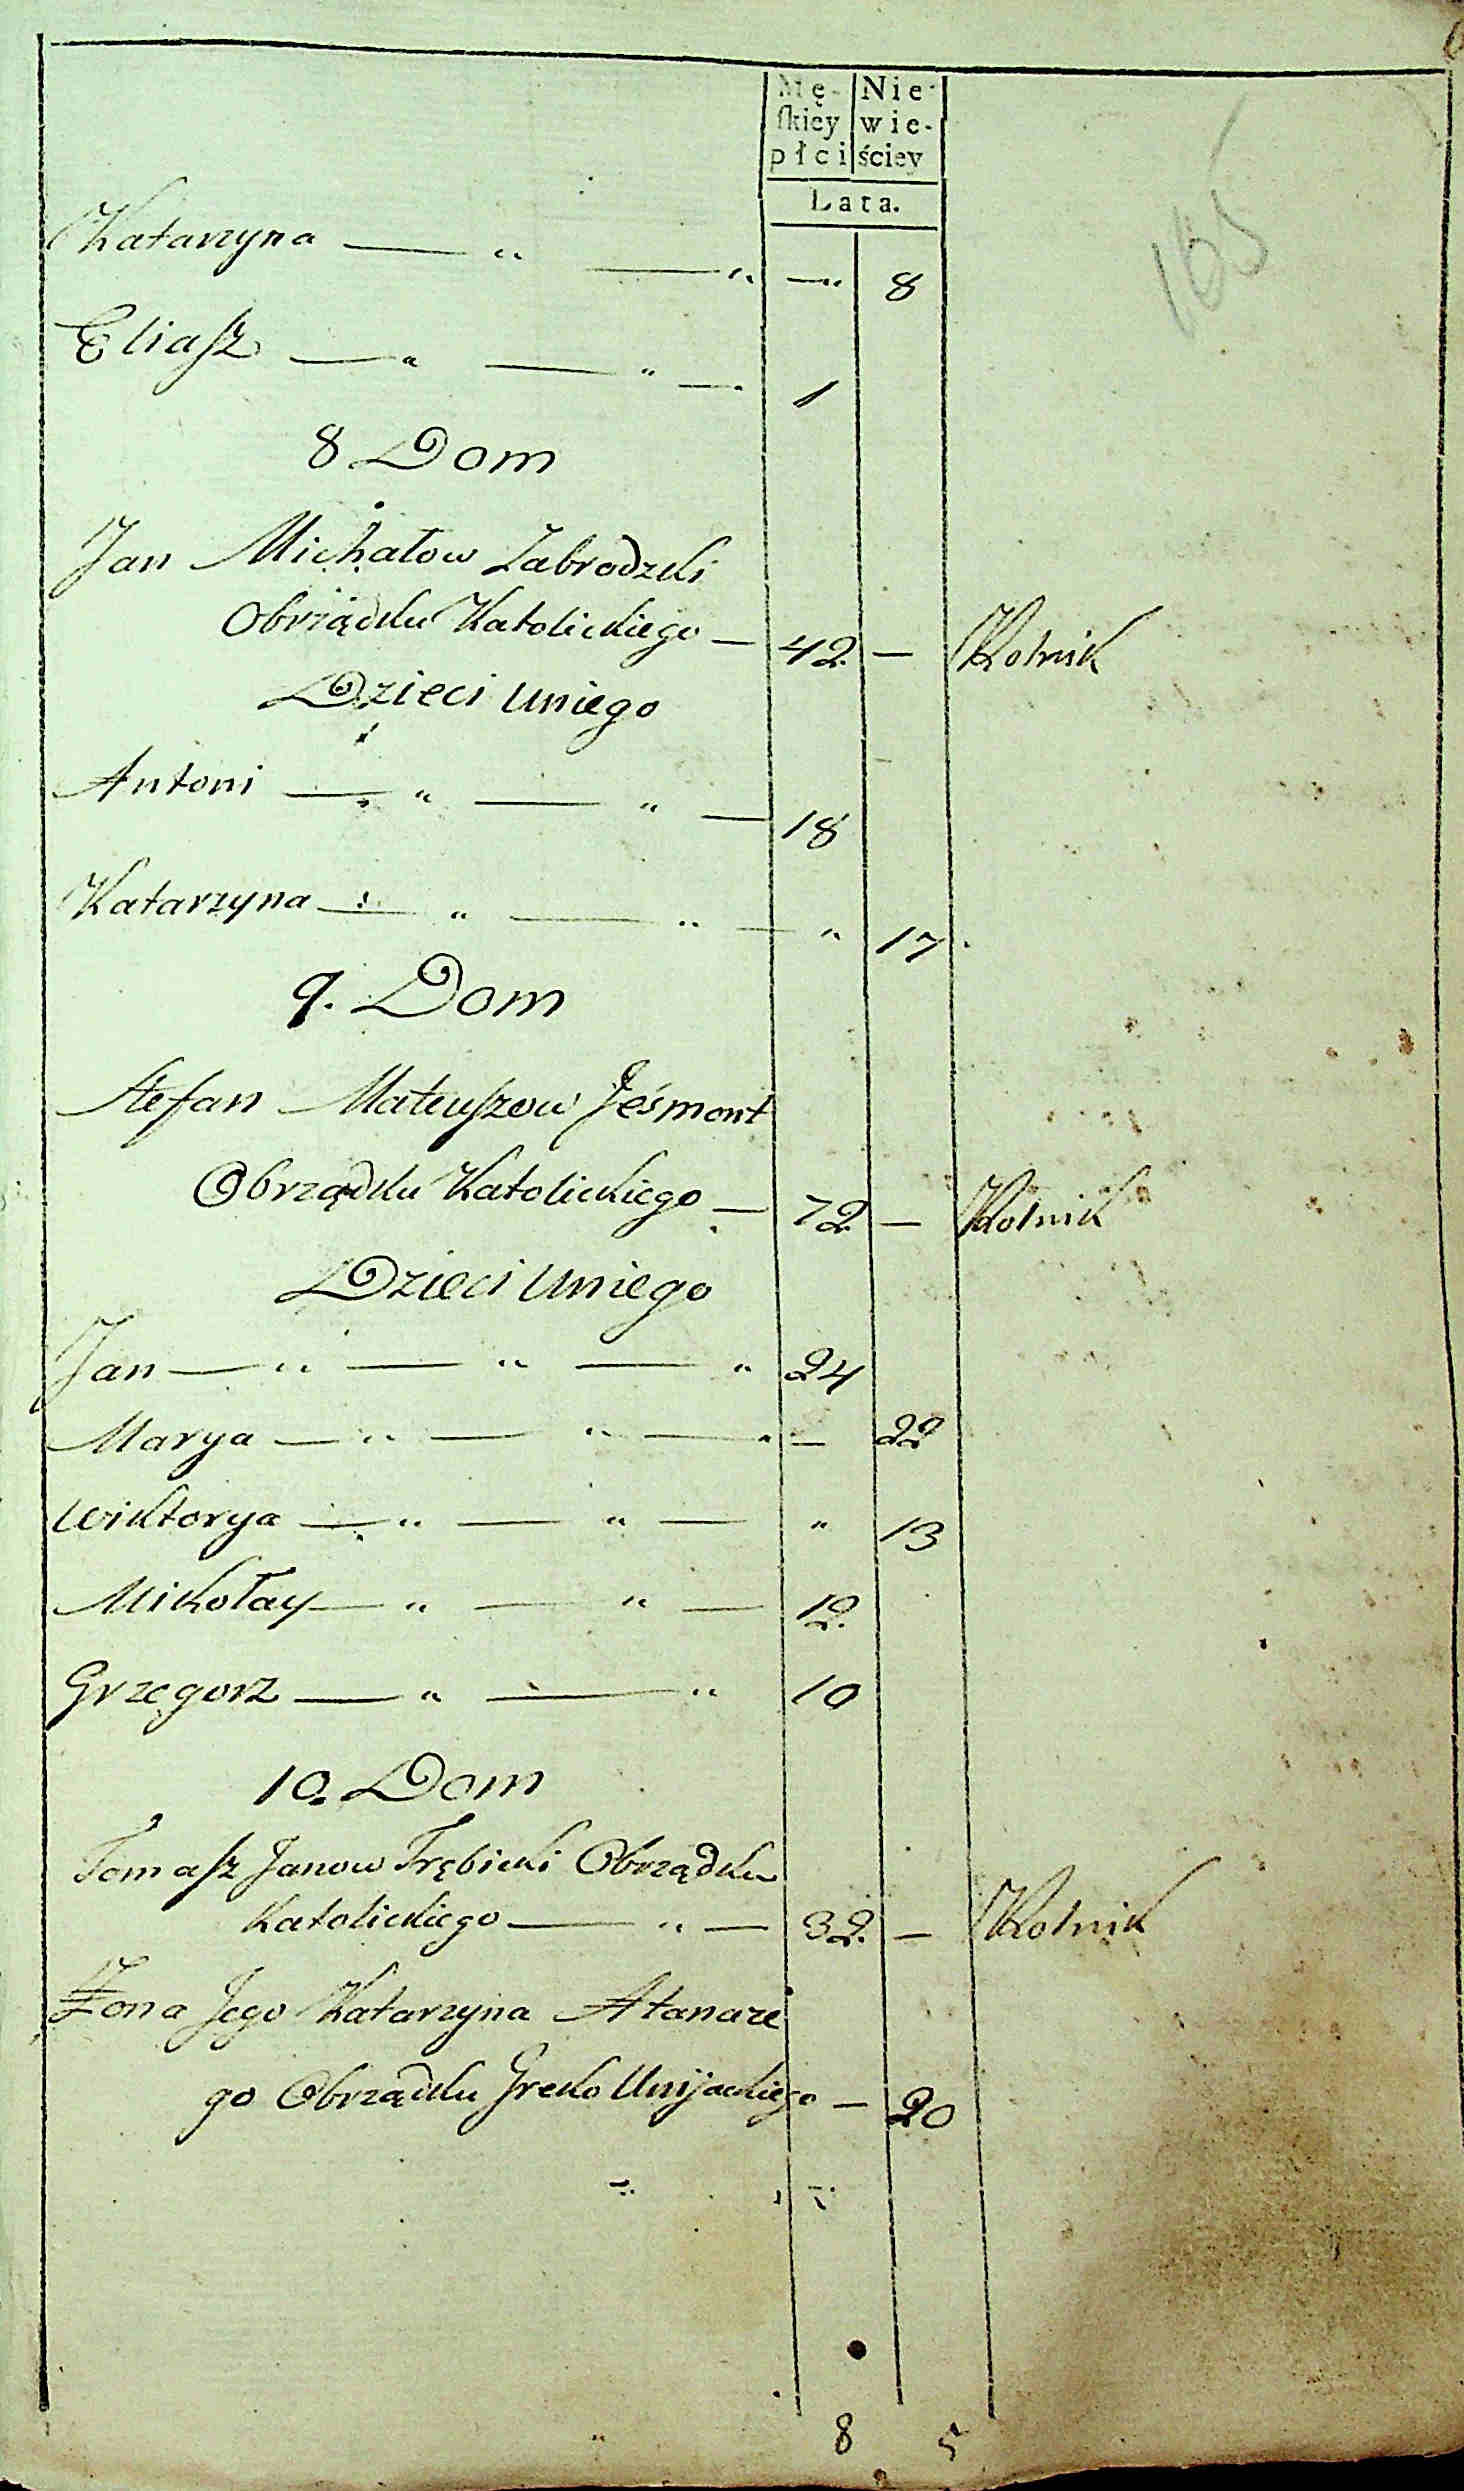 Mę- Nie-
ſkiey wie-
płci ściey
Lata.
165
Katarzyna — " — " — " 8
Eliaſz — " — " — 1
8 Dom
Jan Michałow Zabrodzki
Obrządku Katolickiego — 42. — Rolnik
Dzieci Uniego
Antoni — " — " — 18
Katarzyna — " — " — " 17
9. Dom
Stefan Mateuſzow Jeśmont
Obrządku Katolickiego — 72 — Rolnik
Dzieci Uniego
Jan — " — " — " 24
Marya — " — " — " — 22
Wiktorya — " — " — " 13
Mikołay — " — " — 12.
Grzegorz — " — " 10
10. Dom
Tomaſz Janow Trębicki Obrządku
Katolickiego — " — 32. — Rolnik
Żona Jego Katarzyna Atanaze
go Obrządku Greko Unijackiego — 20
8 5